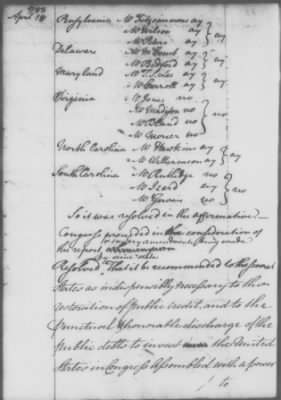 1783
April 18
Pensylvania Mr Fitzsimmons ay } ay
Mr Wilson ay
Mr Peters ay
Delaware Mr McComb ay } ay
Mr Bedford ay
Maryland Mr T. S. Lee ay } ay
Mr Carroll ay
Virginia Mr Jones no } no
Mr Madison no
Mr Bland no
Mr Mercer no
North Carolina Mr Hawkins ay } ay
Mr Williamson ay
South Carolina Mr Rutledge no } no
Mr Izard ay
Mr Gervais no
So it was resolved in the affirmative
Congress proceeded in the consideration of
the report
by nine states
Resolved That it be recommended to the several
states as indispensably necessary to the
restoration of public credit and to the
punctual & honorable discharge of the
public debts to invest the United
States in Congress Assembled with a power
to